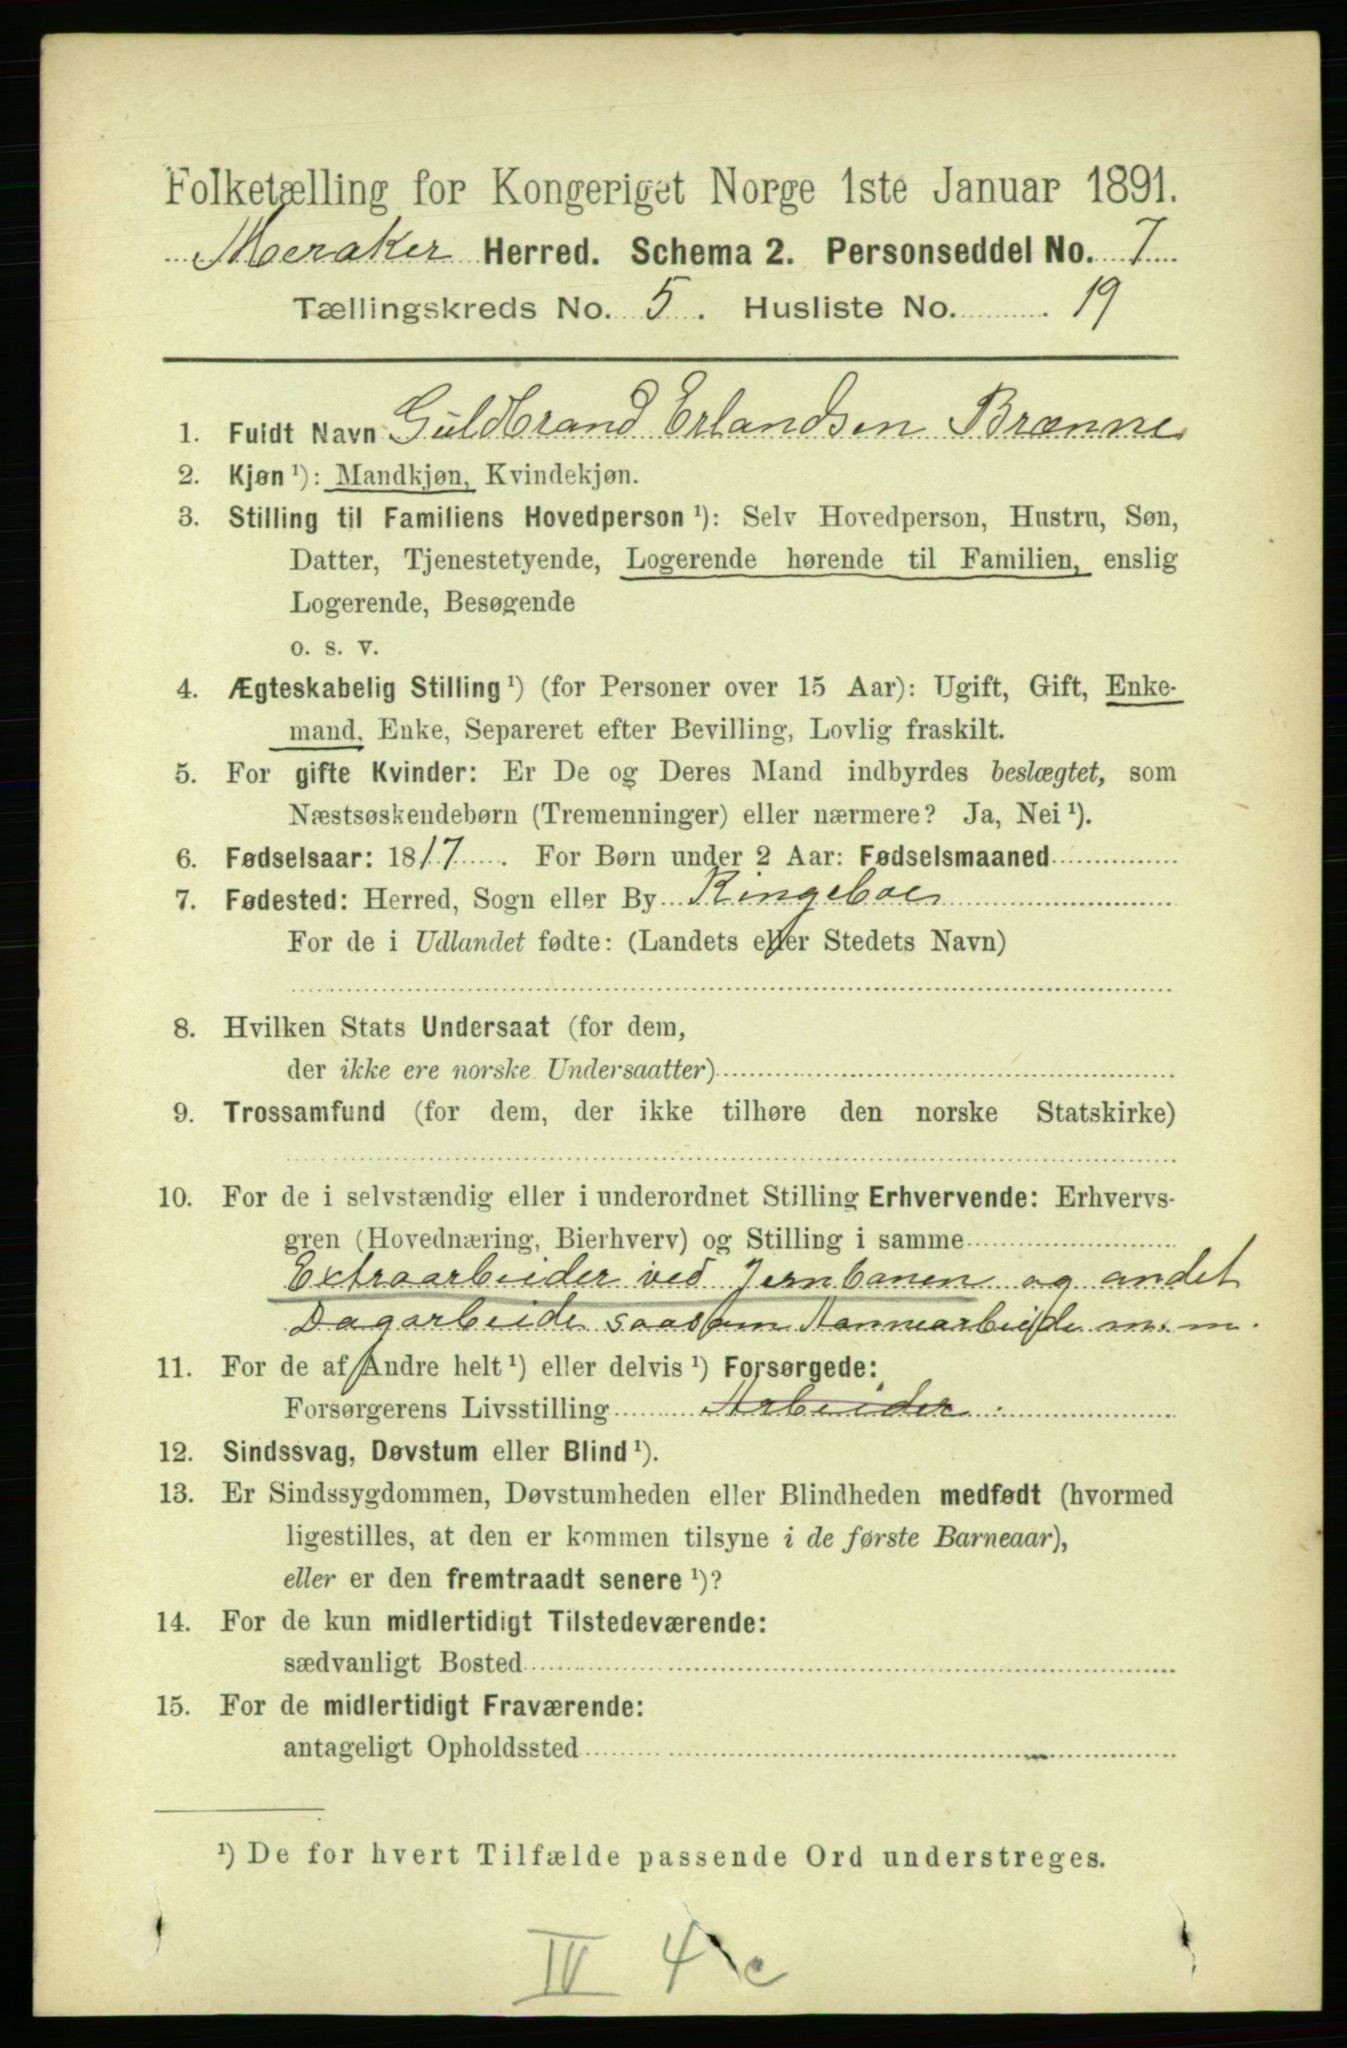 Folketælling for Kongeriget Norge 1ste Januar 1891.
Meraker Herred. Schema 2. Personseddel No. 7
Tællingskreds No. 5. Husliste No. 19
1. Fuldt Navn Guldbrand Erlandsen Brænne
2. Kjøn ¹): Mandkjøn, Kvindekjøn.
3. Stilling til Familiens Hovedperson ¹): Selv Hovedperson, Hustru, Søn,
Datter, Tjenestetyende, Logerende hørende til Familien, enslig
Logerende, Besøgende
o. s. v.
4. Ægteskabelig Stilling ¹) (for Personer over 15 Aar): Ugift, Gift, Enke-
mand, Enke, Separeret efter Bevilling, Lovlig fraskilt.
5. For gifte Kvinder: Er De og Deres Mand indbyrdes beslægtet, som
Næstsøskendebørn (Tremenninger) eller nærmere? Ja, Nei ¹).
6. Fødselsaar: 1817. For Børn under 2 Aar: Fødselsmaaned
7. Fødested: Herred, Sogn eller By Ringeboe
For de i Udlandet fødte: (Landets eller Stedets Navn)
8. Hvilken Stats Undersaat (for dem,
der ikke ere norske Undersaatter)
9. Trossamfund (for dem, der ikke tilhøre den norske Statskirke)
10. For de i selvstændig eller i underordnet Stilling Erhvervende: Erhvervs-
gren (Hovednæring, Bierhverv) og Stilling i samme
Extraarbeider ved Jernbanen og andet
Dagarbeide saasom Aannearbeide m. m.
11. For de af Andre helt ¹) eller delvis ¹) Forsørgede:
Forsørgerens Livsstilling Arbeider
12. Sindssvag, Døvstum eller Blind ¹).
13. Er Sindssygdommen, Døvstumheden eller Blindheden medfødt (hvormed
ligestilles, at den er kommen tilsyne i de første Barneaar),
eller er den fremtraadt senere ¹)?
14. For de kun midlertidigt Tilstedeværende:
sædvanligt Bosted
15. For de midlertidigt Fraværende:
antageligt Opholdssted
¹) De for hvert Tilfælde passende Ord understreges.
IV 4 c